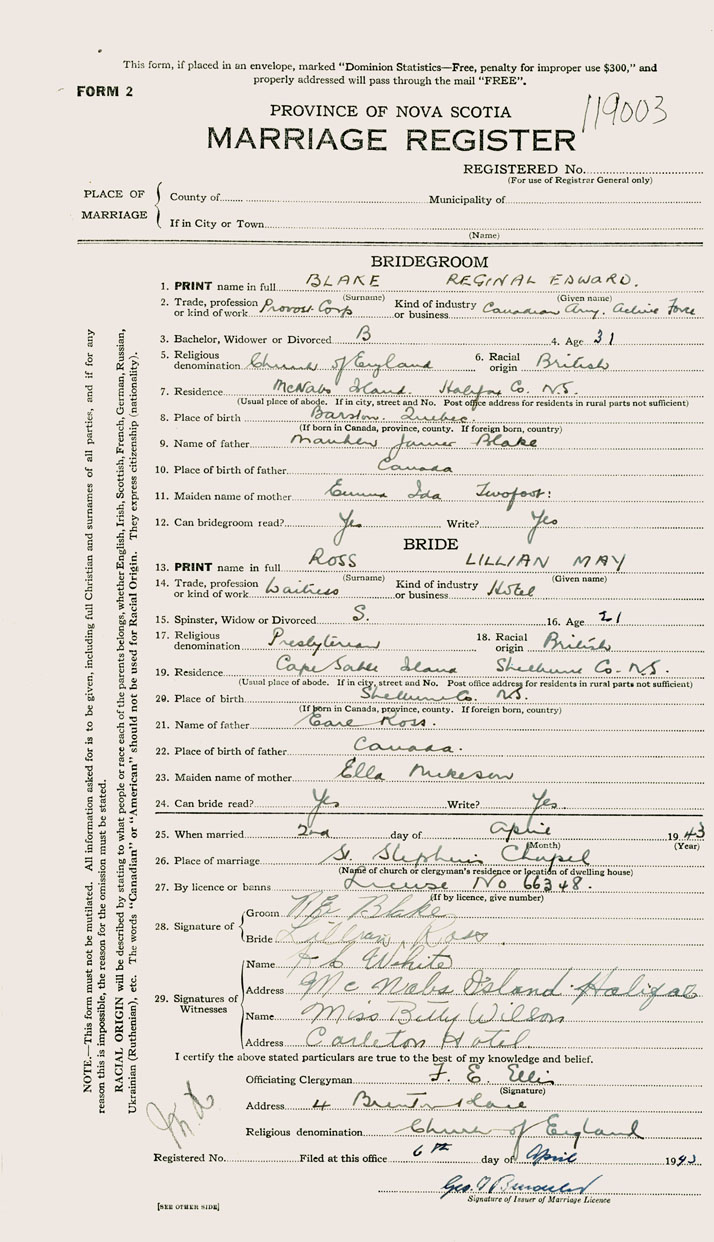 This form, if placed in an envelope, marked "Dominion Statistics—Free, penalty for improper use $300," and
properly addressed will pass through the mail "FREE".
FORM 2
119003
PROVINCE OF NOVA SCOTIA
MARRIAGE REGISTER
REGISTERED No.
(For use of Registrar General only)
PLACE OF MARRIAGE
County of Municipality of
If in City or Town
(Name)
BRIDEGROOM
1. PRINT name in full BLAKE REGINAL EDWARD.
(Surname) (Given name)
2. Trade, profession or kind of work Provost Corp Kind of industry or business Canadian Army. Active Force
3. Bachelor, Widower or Divorced B 4. Age 31
5. Religious denomination Church of England 6. Racial origin British
7. Residence McNabs Island. Halifax Co. N.S.
(Usual place of abode. If in city, street and No. Post office address for residents in rural parts not sufficient)
8. Place of birth Barston. Quebec.
(If born in Canada, province, county. If foreign born, country)
9. Name of father James Blake
10. Place of birth of father Canada
11. Maiden name of mother Emma Ida Twofoot:
12. Can bridegroom read? Yes Write? Yes
BRIDE
13. PRINT name in full ROSS LILLIAN MAY
(Surname) (Given name)
14. Trade, profession or kind of work Waitress Kind of industry or business Hotel
15. Spinster, Widow or Divorced S. 16. Age 21
17. Religious denomination Presbyterian 18. Racial origin British
19. Residence Cape Sable Island Shelburne Co. N.S.
(Usual place of abode. If in city, street and No. Post office address for residents in rural parts not sufficient)
20. Place of birth Shelburne Co. N.S.
(If born in Canada, province, county. If foreign born, country)
21. Name of father Earl Ross.
22. Place of birth of father Canada.
23. Maiden name of mother Ella
24. Can bride read? Yes Write? Yes.
25. When married 2nd day of April 1943
(Month) (Year)
26. Place of marriage St. Stephen's Chapel
(Name of church or clergyman's residence or location of dwelling house)
27. By licence or banns License No 66348.
(If by licence, give number)
28. Signature of
Groom R E Blake
Bride Lillian Ross.
29. Signatures of Witnesses
Name White
Address McNabs Island Halifax
Name Miss Betty Wilson
Address Carleton Hotel
I certify the above stated particulars are true to the best of my knowledge and belief.
Officiating Clergyman F. E. Ellis
(Signature)
Address 4 Place
Religious denomination Church of England
Registered No. Filed at this office 6th day of April 1943
Geo.
Signature of Issuer of Marriage Licence
[SEE OTHER SIDE]
NOTE.—This form must not be mutilated. All information asked for is to be given, including full Christian and surnames of all parties, and if for any
reason this is impossible, the reason for the omission must be stated.
RACIAL ORIGIN will be described by stating to what people or race each of the parents belongs, whether English, Irish, Scottish, French, German, Russian,
Ukrainian (Ruthenian), etc. The words "Canadian" or "American" should not be used for Racial Origin. They express citizenship (nationality).